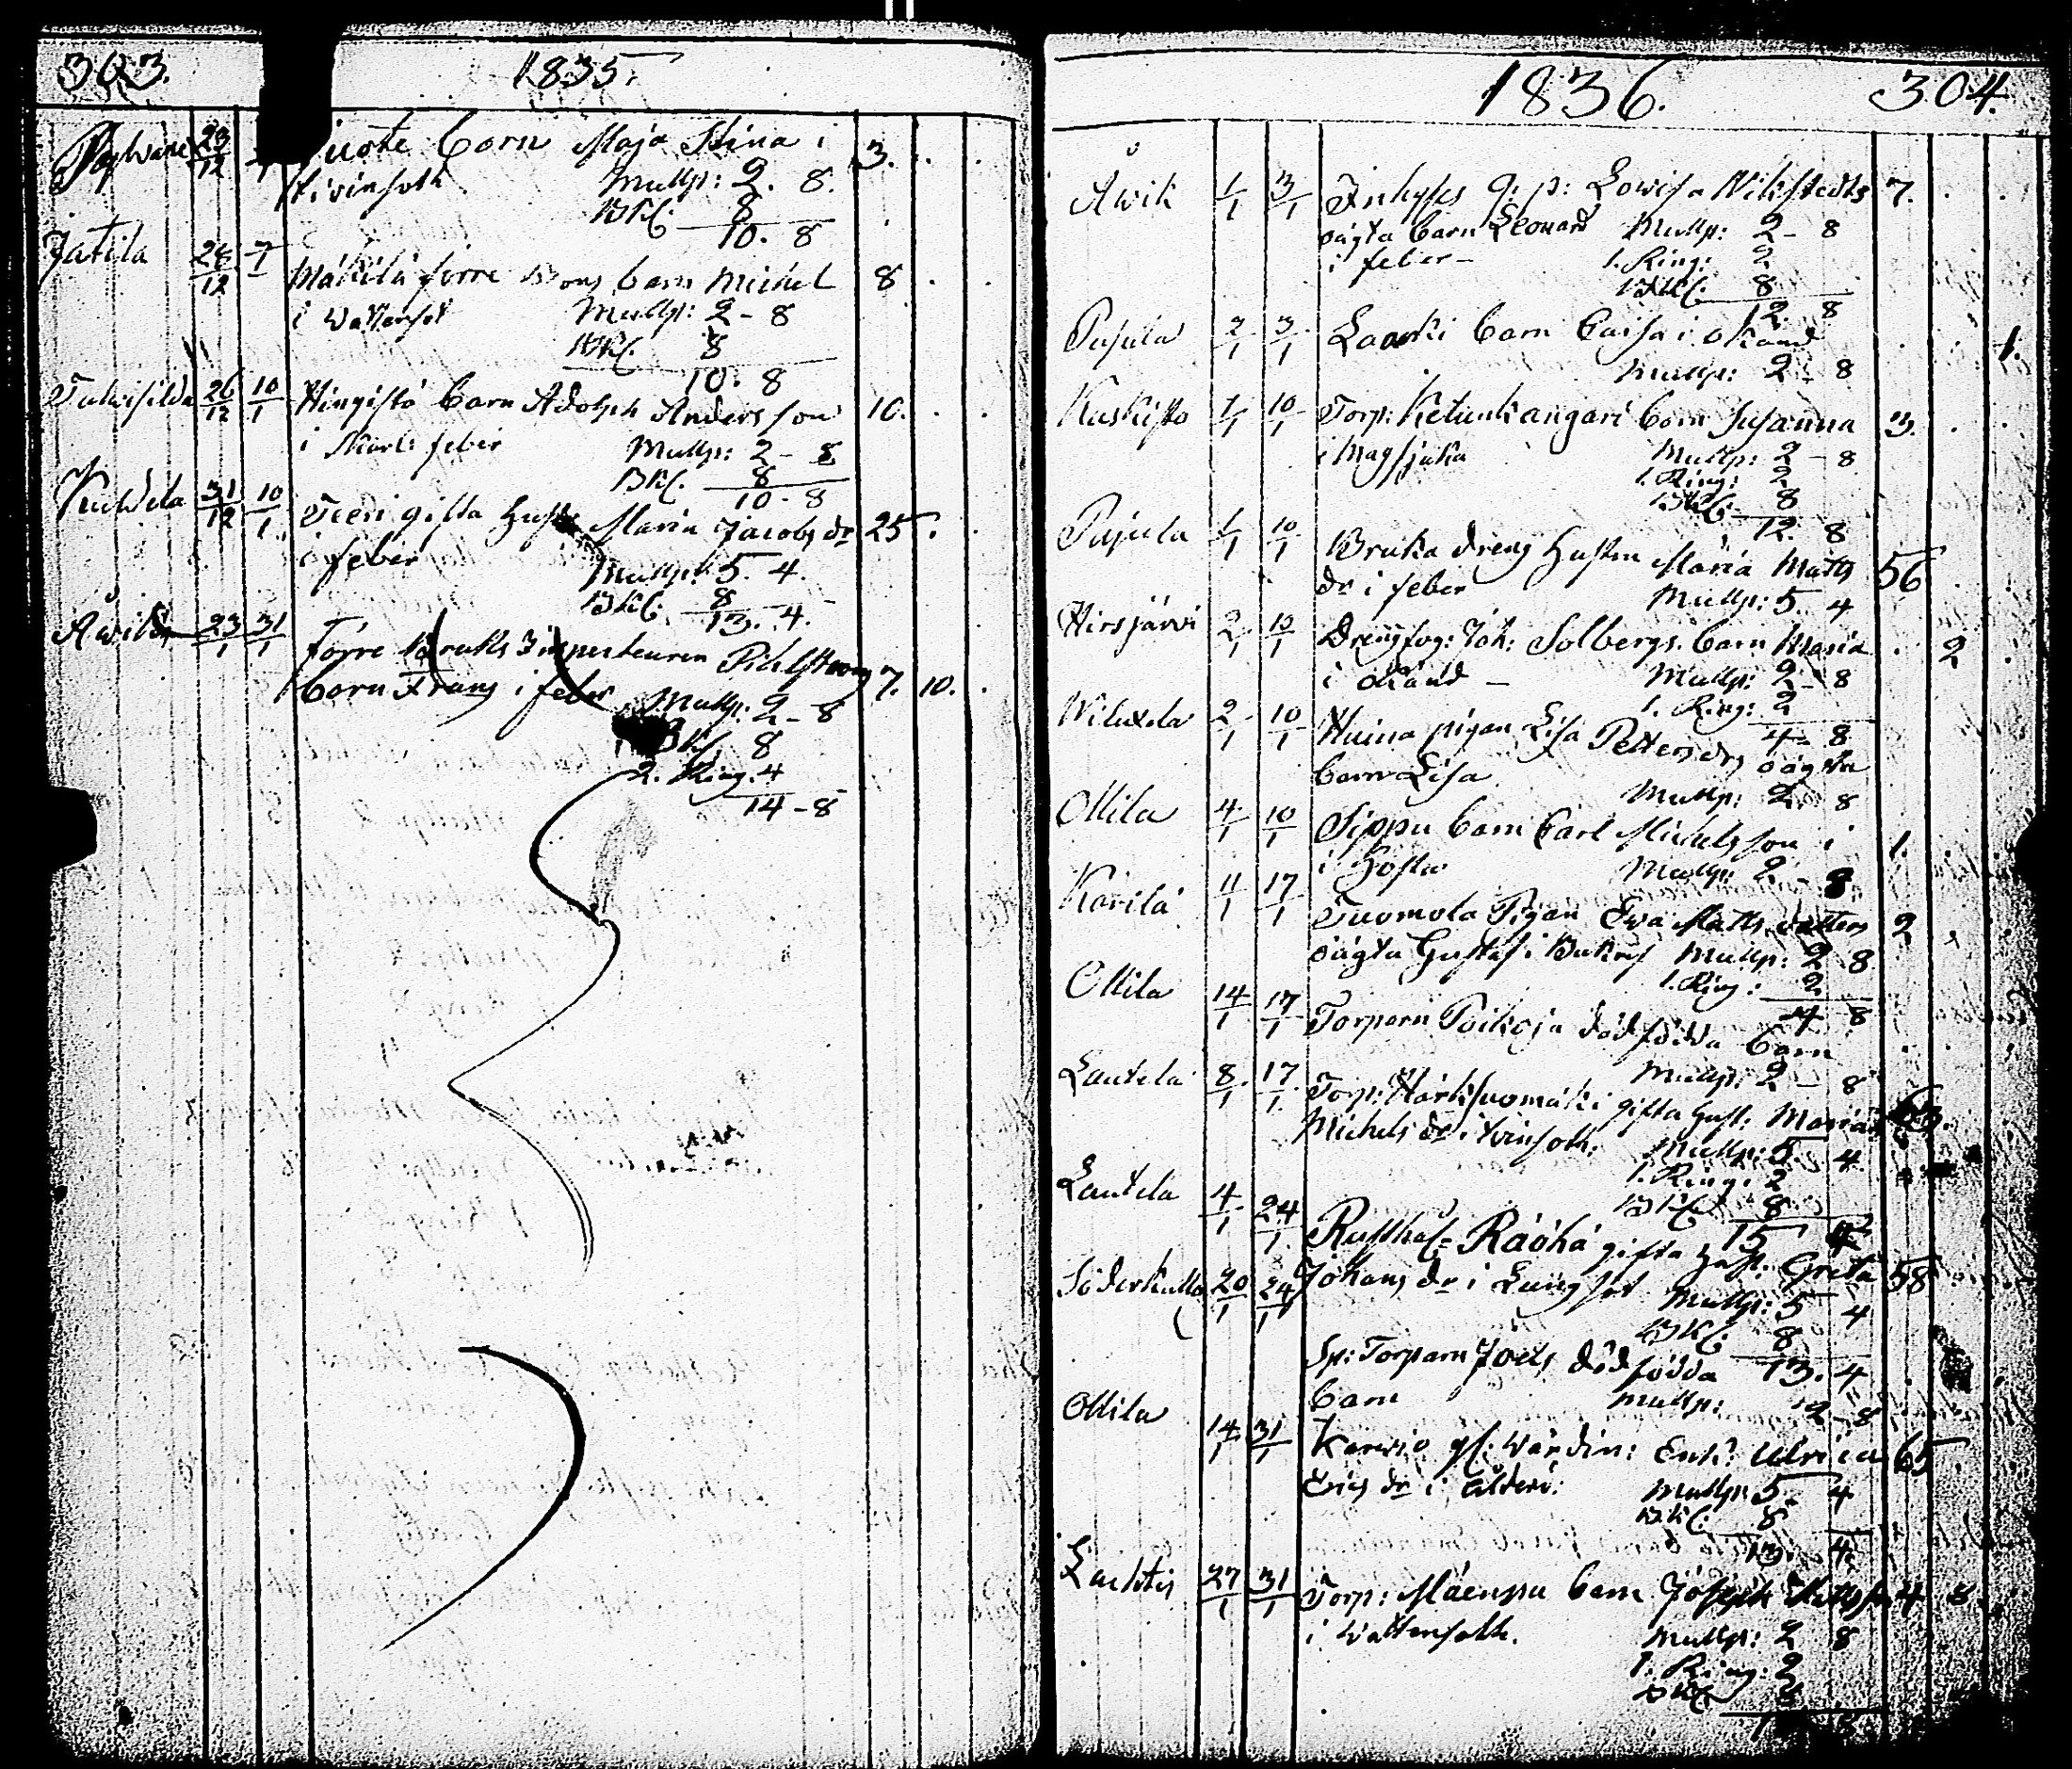 303. 1835.
23/12 Juote barn Maja Stina i 3.
Mullp: 2. 8.
BKl. 8
10. 8
Jatila 28/12 7/1 Mäkilä förre Bons barn Michel 8
i Wattensot Mullp: 2 - 8
BKl. 8
10. 8
26/12 10/1 Hingistö barn Adolph Andersson 10.
i feber Mullp: 2 - 8
BKl. 8
10 - 8
31/12 10/1 gifta Hustr Maria Jacobs dr 25.
i feber
Mullp: 5. 4.
BKl. 8
13. 4.
Åwik 23/1 31/1 Förre Bruks Inspecteuren
barn Frans i feber 7. 10.
Mullp: 2 - 8
BKl. 8
2. Ring. 4
14 - 8
1836. 304.
Åwik 1/1 3/1 Inhyses q: p: Lowisa Wikstedts 7.
oägta barn Leonard Mullp: 2 - 8
i feber - 1. Ring: 2
BKl. 8
12. 8
Pajula 2/1 3/1 barn Caisa i okänd 1.
Mullp: 2 - 8
Kuskisto 1/1 10/1 Torp: Ketunkangari barn Susanna 3.
i Magsjuka Mullp: 2 - 8
1. Ring: 2
BKl. 8
12. 8
Pajula 1/1 10/1 Bruka dreng Hustrun Maria Matts 56
dr i feber Mullp: 5. 4
Hirsjärvi 2/1 10/1 Drengfog: Joh: Solbergs barn Maria 2
i okänd - Mullp: 2 - 8
1. Ring: 2
4 - 8
2/1 10/1 Huina pigan Lisa Petters drs oägta
barn Lisa Mullp: 2. 8
Ollila 4/1 10/1 Sippu barn Carl Michelsson i 1.
i Hosta Mullp: 2 - 8
Karilä 11/1 17/1 Tuomola Pigan Eva Matts dotters 2
oägta Gustaf i Mullp: 2 8
1. Ring: 2
4 8
Ollila 14/1 17/1 Torparn Poikoja dödfödda barn
Mullp: 2 - 8
Lautela 8/1 17/1 Torp: Harksuomäki gifta Hust: Maria 63.
Michels dr i Mullp: 5. 4
1. Ring: 2
BKl. 8
15 4
Lautela 4/1 24/1 Rusthål: Räöhä gifta Hust. Greta 58
Johans dr i Lungsot Mullp: 5 4
BKl. 8
13. 4
Söderkulla 20/1 24/1 Sp: Torparn Joels dödfödda
barn Mullp: 2 - 8
Ollila 14/1 31/1 Karwio gl: Wärdin: Enk: Ulrica 65
Erics dr i ålderd: Mullp: 5. 4
BKl. 8
13. 4.
Lachtis 27/1 31/1 Torp: Mäenpää barn Joseph 4 8
i Wattensoth. Mullp: 2 8
1. Ring: 2
BKl. 8